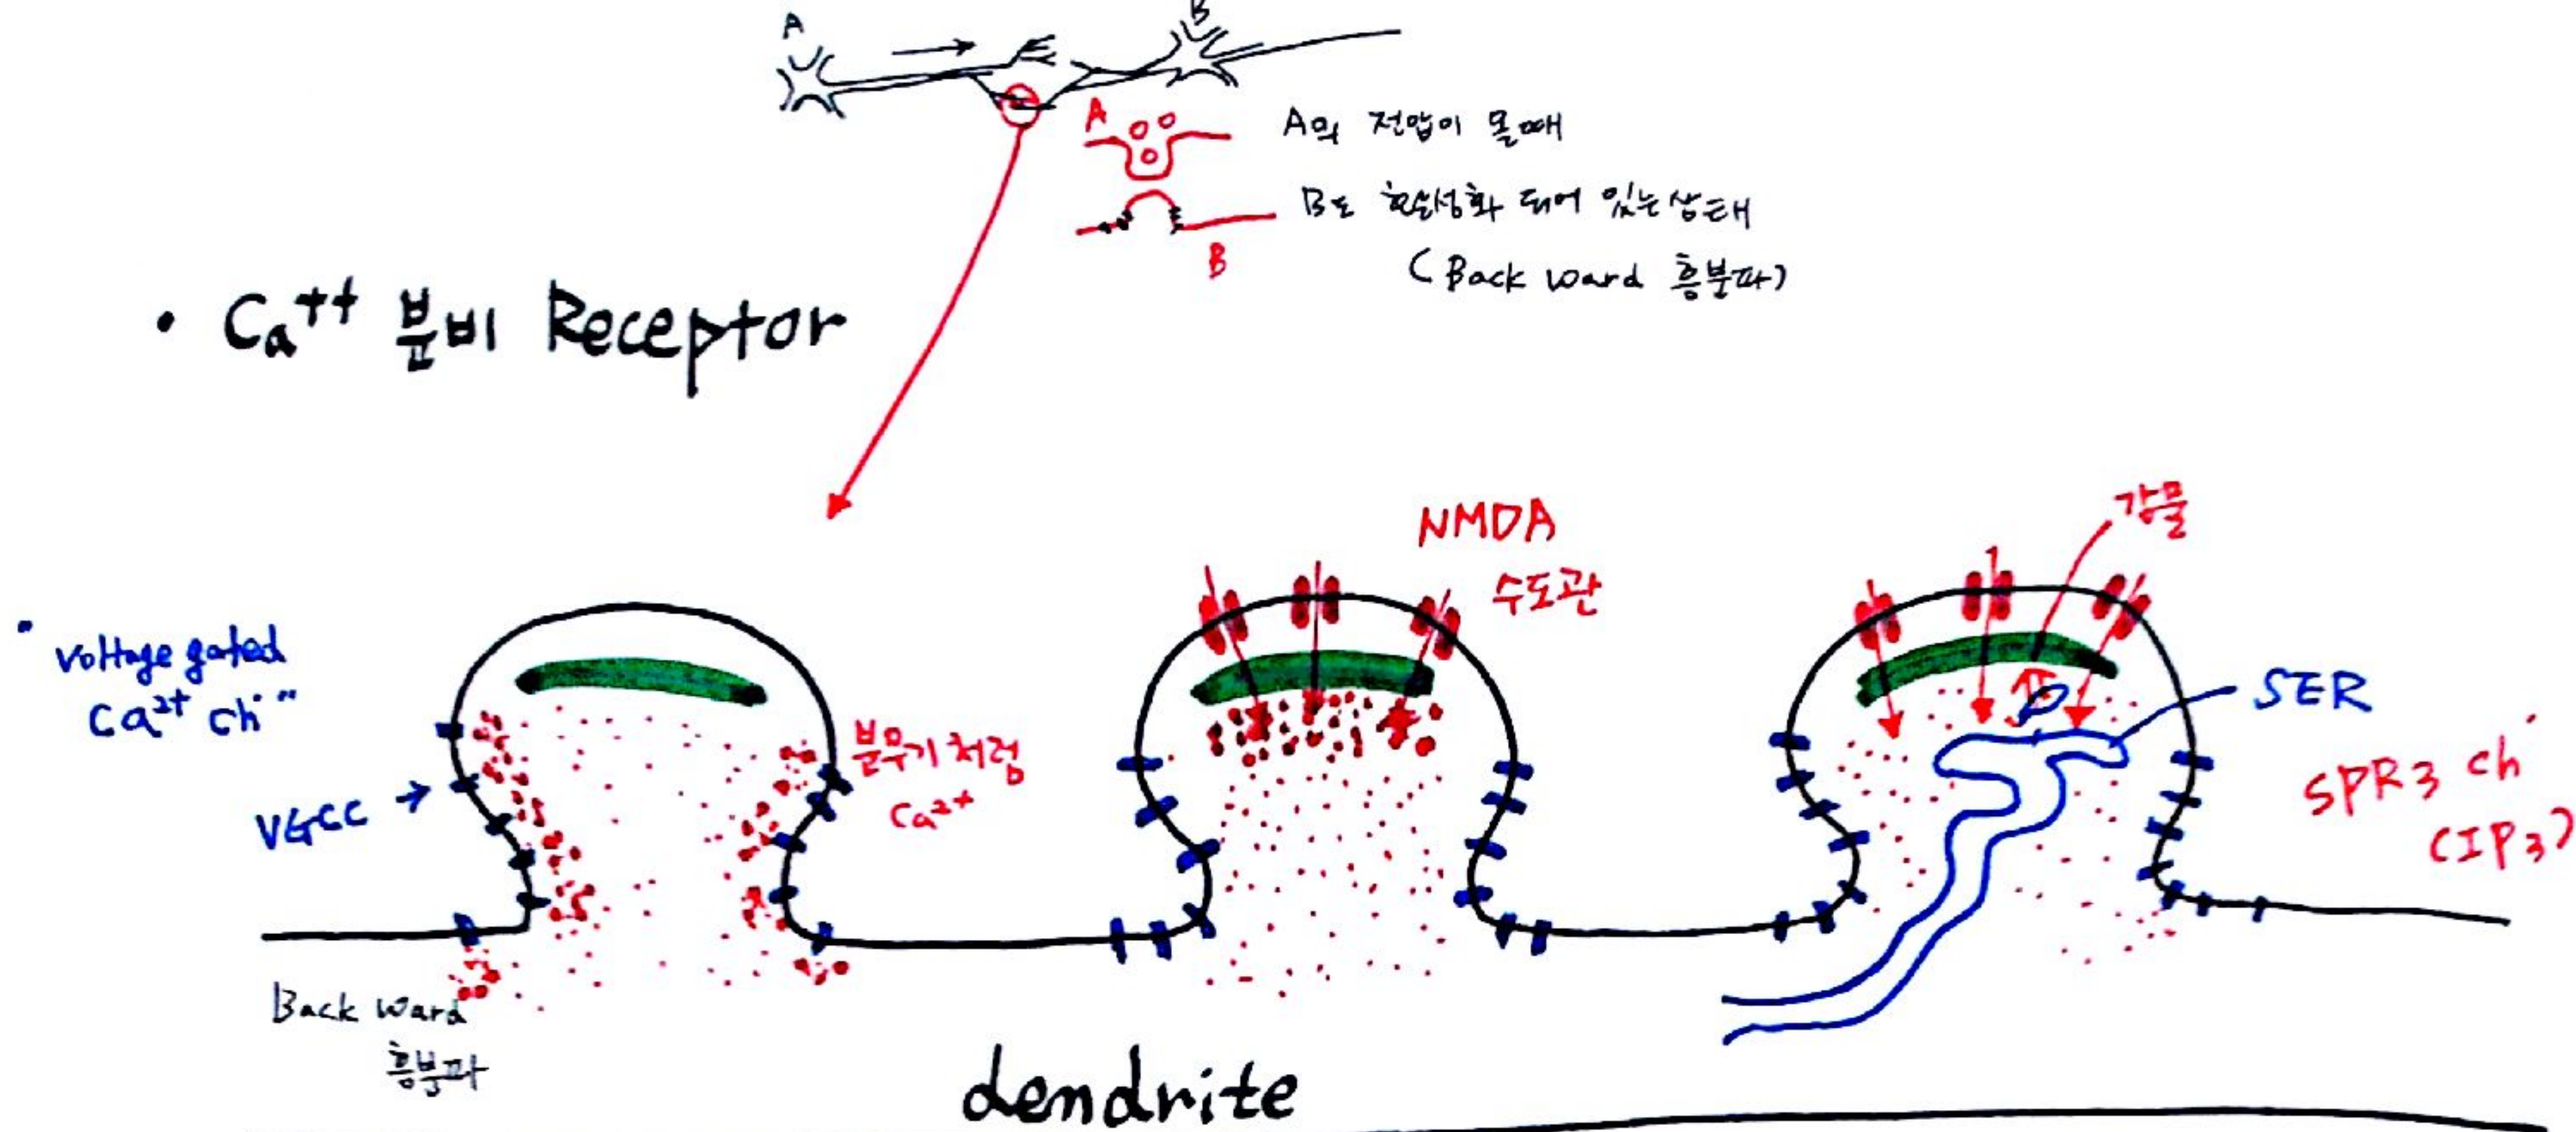 A
B
A
A의 전압이 올때
B도 활성화 되어 있는 상태
B
(Back ward 흥분파)
• Ca⁺⁺ 분비 Receptor
NMDA
수도관
강물
"Voltage gated
Ca²⁺ ch"
VGCC →
분무기처럼
Ca²⁺
SER
SPR3 ch
(IP3)
Back ward
흥분파
dendrite